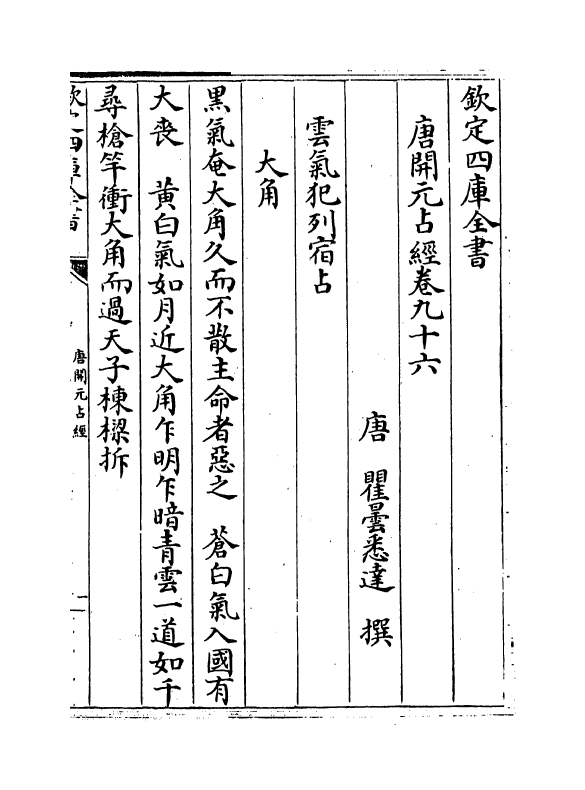 欽定四庫全書
唐開元占經卷九十六
唐 瞿曇悉達 撰
雲氣犯列宿占
大角
黑氣奄大角久而不散主命者惡之 蒼白氣入國有
大喪 黄白氣如月近大角乍明乍暗青雲一道如千
尋槍竿衝大角而過天子棟樑拆
唐開元占經
一